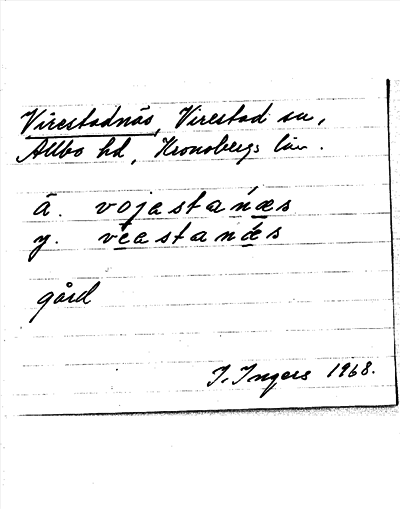 Virestadnäs, Virestad sn,
Allbo hd, Kronobergs län.
ä. vojastanæs
y. veastanæs
gård
I. Ingers 1968.